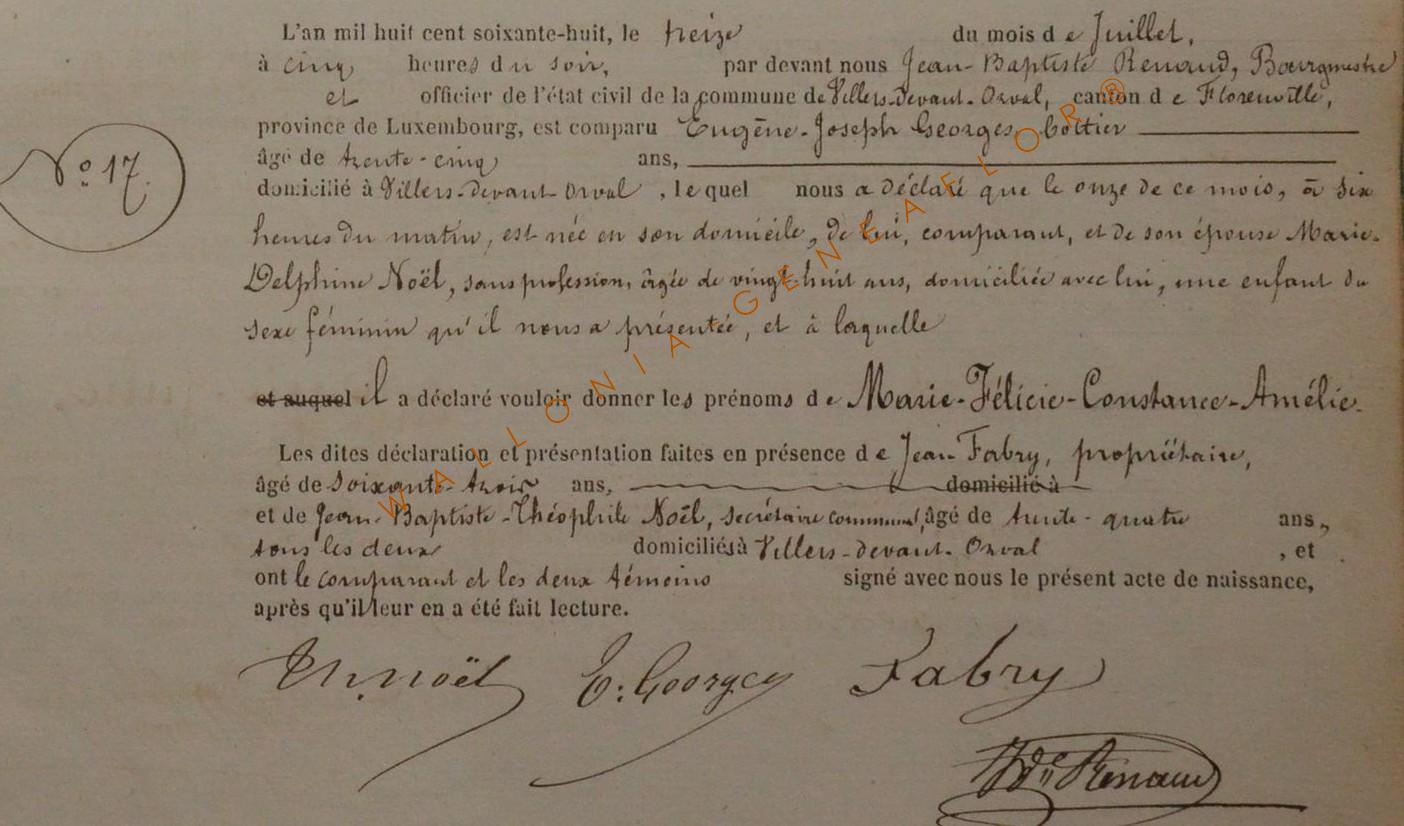 L'an mil huit cent soixante-huit, le treize du mois de Juillet,
à cinq heures du soir, par devant nous Jean-Baptiste Renaud, Bourgmestre
et officier de l'état civil de la commune de Villers-devant-Orval, canton de Florenville,
province de Luxembourg, est comparu Eugène-Joseph Georges,
âgé de trente-cinq ans,
N° 17.
domicilié à Villers-devant-Orval, lequel nous a déclaré que le onze de ce mois, à six
heures du matin, est née en son domicile, de lui, comparant, et de son épouse Marie-
Delphine Noël, sans profession, âgée de vingt-huit ans, domiciliée avec lui, une enfant du
sexe féminin qu'il nous a présentée, et à laquelle
et auquel il a déclaré vouloir donner les prénoms de Marie-Félicie-Constance-Amélie.
Les dites déclaration et présentation faites en présence de Jean Fabry, propriétaire,
âgé de soixante-trois ans, domicilié à
et de Jean-Baptiste-Théophile Noël, secrétaire communal, âgé de trente-quatre ans,
tous les deux domiciliés à Villers-devant-Orval, et
ont le comparant et les deux témoins signé avec nous le présent acte de naissance,
après qu'il leur en a été fait lecture.
Th. Noël E. Georges Fabry
JBte Renaud
WALLONIA GENEAFLOR ®